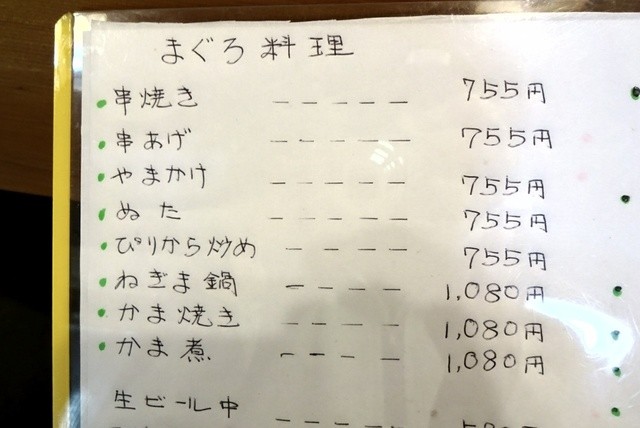 まぐろ料理
串焼き ----- 755円
串あげ ----- 755円
やまかけ ----- 755円
ぬた ----- 755円
ぴりから炒め ---- 755円
ねぎま鍋 ---- 1,080円
かま焼き ---- 1,080円
かま煮 ---- 1,080円
生ビール中 -----